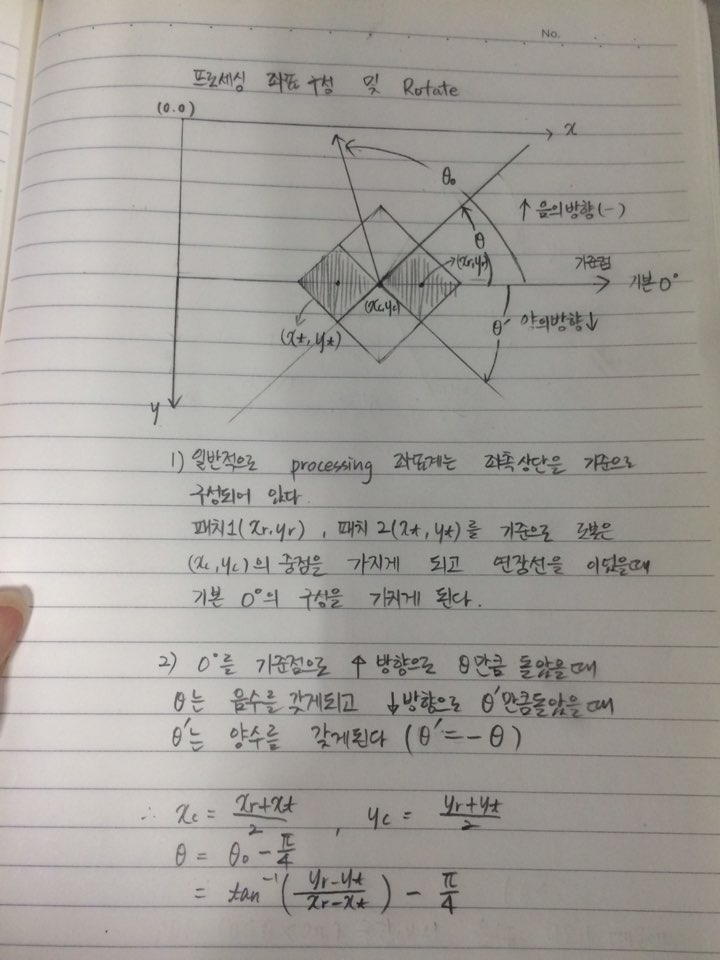 No.
프로세싱 좌표구성 및 Rotate
(0.0)
x
θ₀
↑ 음의방향(-)
θ
(xr,yr)
기준점
기본 0°
(xc,yc)
θ' 양의방향↓
(xt, yt)
y
1) 일반적으로 processing 좌표계는 좌측상단을 기준으로
구성되어 있다.
패치1(xr,yr), 패치2(xt,yt)를 기준으로 로봇은
(xc,yc)의 중점을 가지게 되고 연장선을 이었을때
기본 0°의 구성을 가지게 된다.
2) 0°를 기준점으로 ↑ 방향으로 θ만큼 돌았을때
θ는 음수를 갖게되고 ↓방향으로 θ'만큼돌았을때
θ'는 양수를 갖게된다 (θ'=-θ)
∴ xc = (xr+xt)/2 , yc = (yr+yt)/2
θ = θ₀ - π/4
= tan⁻¹((yr-yt)/(xr-xt)) - π/4